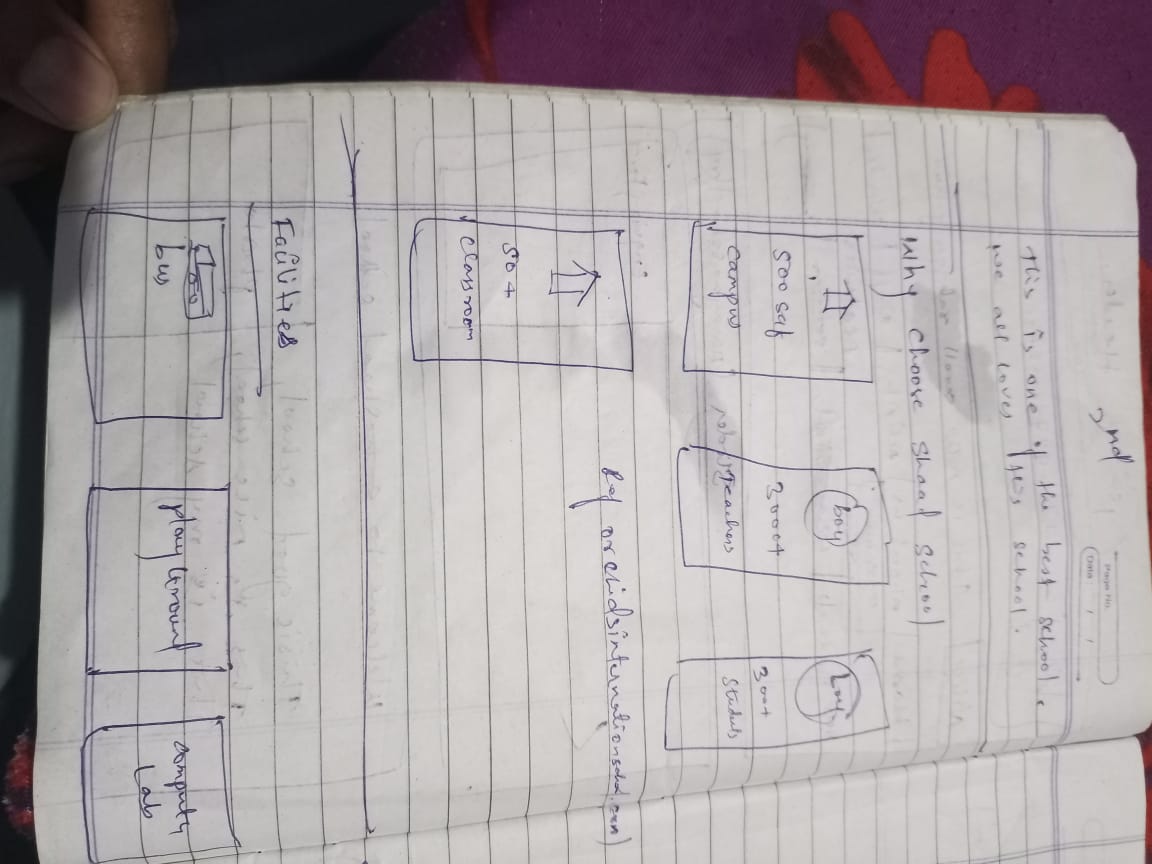 2nd
Page No.
Date / /
This is one of the best school.
we all loves this school.
Why Choose Shaad School
500 sqf
campus
boy
3000+
Teachers
boy
300+
Students
50+
Classroom
Ref orchidsinternationschol.com)
Facilities
bus
play Ground
computer
Lab